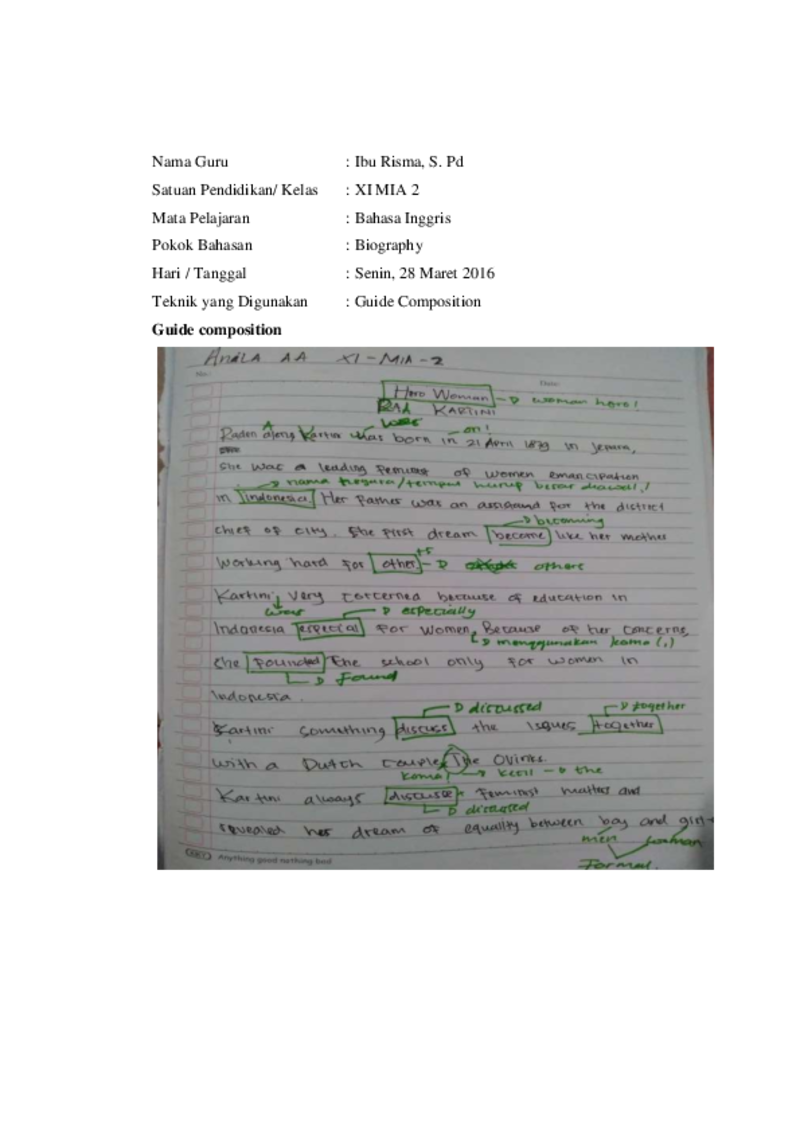 Nama Guru : Ibu Risma, S. Pd
Satuan Pendidikan/ Kelas : XI MIA 2
Mata Pelajaran : Bahasa Inggris
Pokok Bahasan : Biography
Hari / Tanggal : Senin, 28 Maret 2016
Teknik yang Digunakan : Guide Composition
Guide composition
AA XI-MIA-2
No: Date:
Hero Woman woman hero!
RAA KARTINI
was on!
Raden Ajeng Kartini was born in 21 April 1879 in Jepara,
She was a leading feminist of women emancipation
nama negara/tempat huruf besar diawal!
in indonesia. Her father was an for the district
becoming
chief of city. She first dream become like her mother
Working hard for other others
Kartini very concerned because of education in
was especially
Indonesia especial for women, Because of her concerns,
menggunakan koma (,)
She founded The school only for women in
Found
Indonesia.
discussed together
Kartini something discuss the issues together
With a Dutch couple The Ovinks.
koma! kecil the
Kartini always feminist matters and
discussed
revealed her dream of equality between boy and girl
men woman
Anything good nothing bad
Formal.